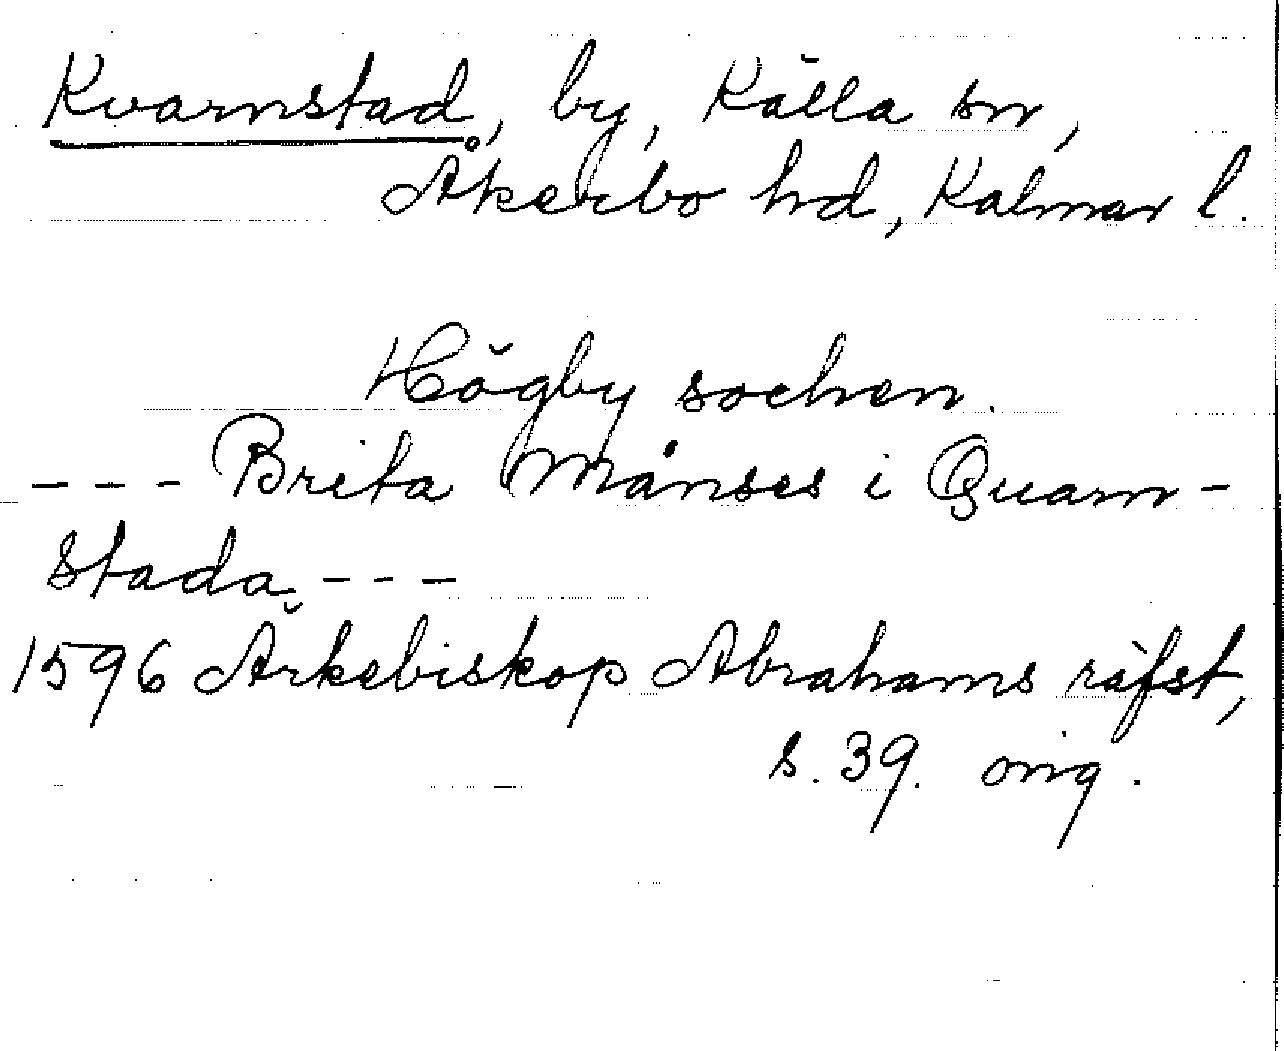 Kvarnstad, by, Källa sn,
Åkerbo hd, Kalmar l.
Högby sochen.
--- Brita Månses i Quarn-
stada ---
1596 Ärkebiskop Abrahams räfst,
s. 39. orig.